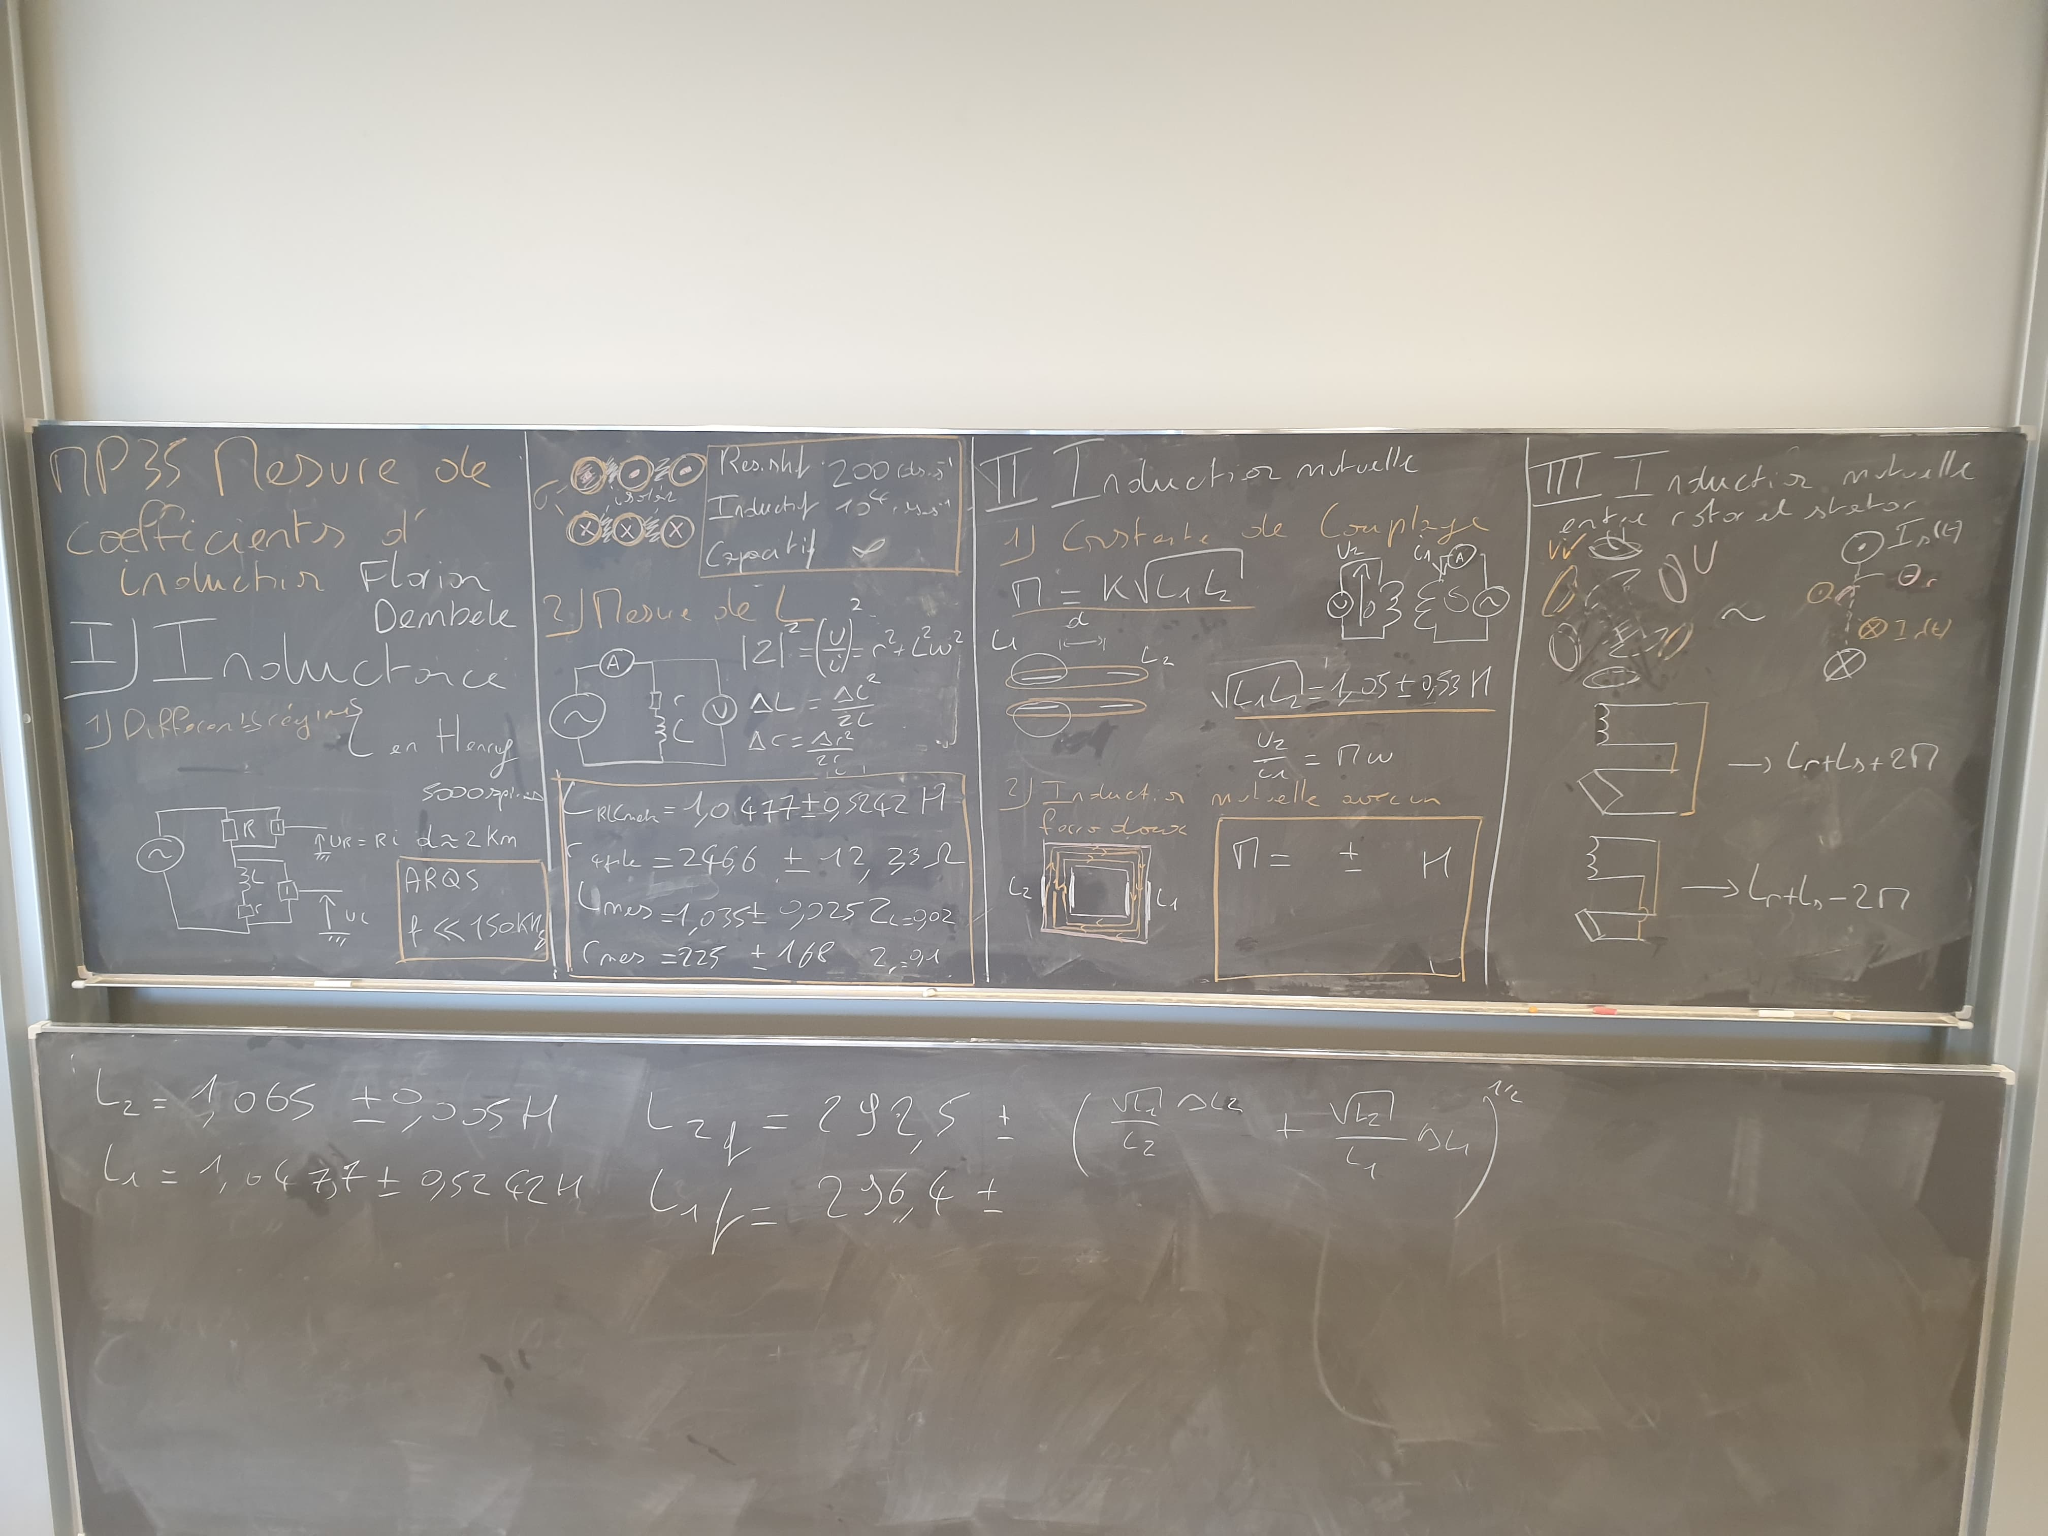 MP35 Mesure de
coefficients d'
induction Florian
Dembele
I) Inductance
1) Différents régimes
L en Henry
5000 spires
R
UR = Ri d ≈ 2 km
L
r
UL
ARQS
f << 150 kHz
isolant
Résistif 200 rads.s⁻¹
Inductif 10⁴ rads.s⁻¹
Capacitif ∞
2) Mesure de L
|Z|² = (U/i)² = r² + L²ω²
A
r
L
V
ΔL = ΔL²/2L
Δr = Δr²/2r
L RLCmetre = 1,0477 ± 0,5242 H
r = 246,6 ± 12,33 Ω
Lmes = 1,035 ± 0,025 ZL = 0,02
rmes = 225 ± 168 Zr = 0,1
II Induction mutuelle
1) Constante de Couplage
M = K√L1L2
U2
i1
A
V
L1
d
L2
√L1L2 = 1,05 ± 0,53 H
U2/i1 = Mω
2) Induction mutuelle avec un
ferro doux
L2
L1
M = ± H
III Induction mutuelle
entre rotor et stator
W
U
V
~
Is(t)
θr
Ir(t)
→ Lr + Ls + 2M
→ Lr + Ls - 2M
L2 = 1,065 ± 0,005 H
L1 = 1,0477 ± 0,5242 H
L2f = 292,5 ± (√L1/L2 ΔL2 + √L2/L1 ΔL1)^1/2
L1f = 296,4 ±